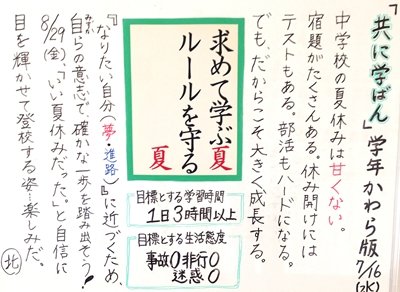 「共に学ばん」学年かわら版7/16(水)
中学校の夏休みは甘くない。
宿題がたくさんある。休み開けには
テストもある。部活もハードになる。
でも、だからこそ大きく成長する。
求めて学ぶ夏
ルールを守る夏
目標とする学習時間
1日3時間以上
目標とする生活態度
事故0非行0
迷惑0
『なりたい自分(夢・進路)』に近づくため、
自らの意志で確かな一歩を踏み出そう!
みずか
8/29(金)、「いい夏休みだった。」と自信に
目を輝かせて登校する姿…楽しみだ。
北